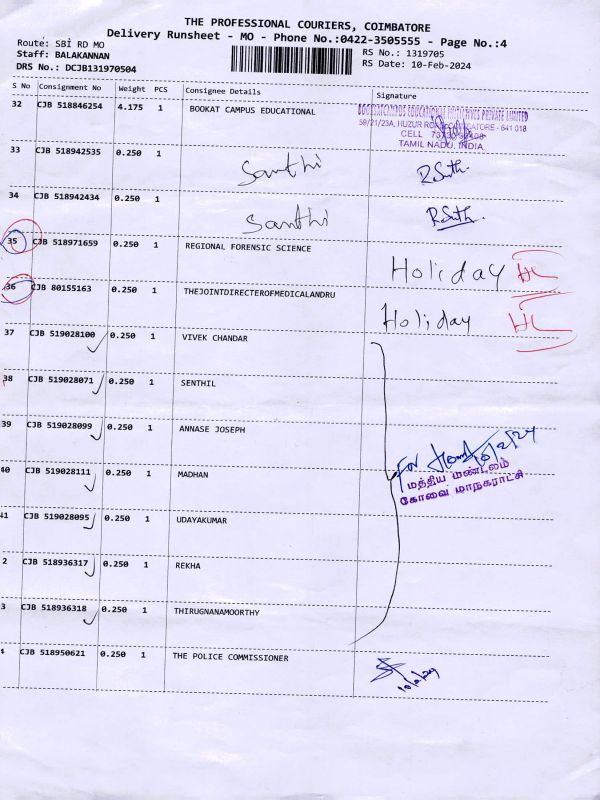 THE PROFESSIONAL COURIERS, COIMBATORE
Delivery Runsheet - MO - Phone No.:0422-3505555 - Page No.:4
Route: SBI RD MO
Staff: BALAKANNAN
DRS No.: DCJB131970504
RS No.: 1319705
RS Date: 10-Feb-2024
S No Consignment No Weight PCS Consignee Details Signature
32 CJB 518846254 4.175 1 BOOKAT CAMPUS EDUCATIONAL
59/21/23A, HUZUR ROAD, COIMBATORE - 641 018
CELL
TAMIL NADU, INDIA.
33 CJB 518942535 0.250 1
Santhi
34 CJB 518942434 0.250 1
Santhi
35 CJB 518971659 0.250 1 REGIONAL FORENSIC SCIENCE
Holiday
36 CJB 80155163 0.250 1 THEJOINTDIRECTEROFMEDICALANDRU
Holiday
37 CJB 519028100 0.250 1 VIVEK CHANDAR
38 CJB 519028071 0.250 1 SENTHIL
39 CJB 519028099 0.250 1 ANNASE JOSEPH
For
மத்திய மண்டலம்
கோவை மாநகராட்சி
40 CJB 519028111 0.250 1 MADHAN
41 CJB 519028095 0.250 1 UDAYAKUMAR
2 CJB 518936317 0.250 1 REKHA
3 CJB 518936318 0.250 1 THIRUGNANAMOORTHY
4 CJB 518950621 0.250 1 THE POLICE COMMISSIONER
10/2/24